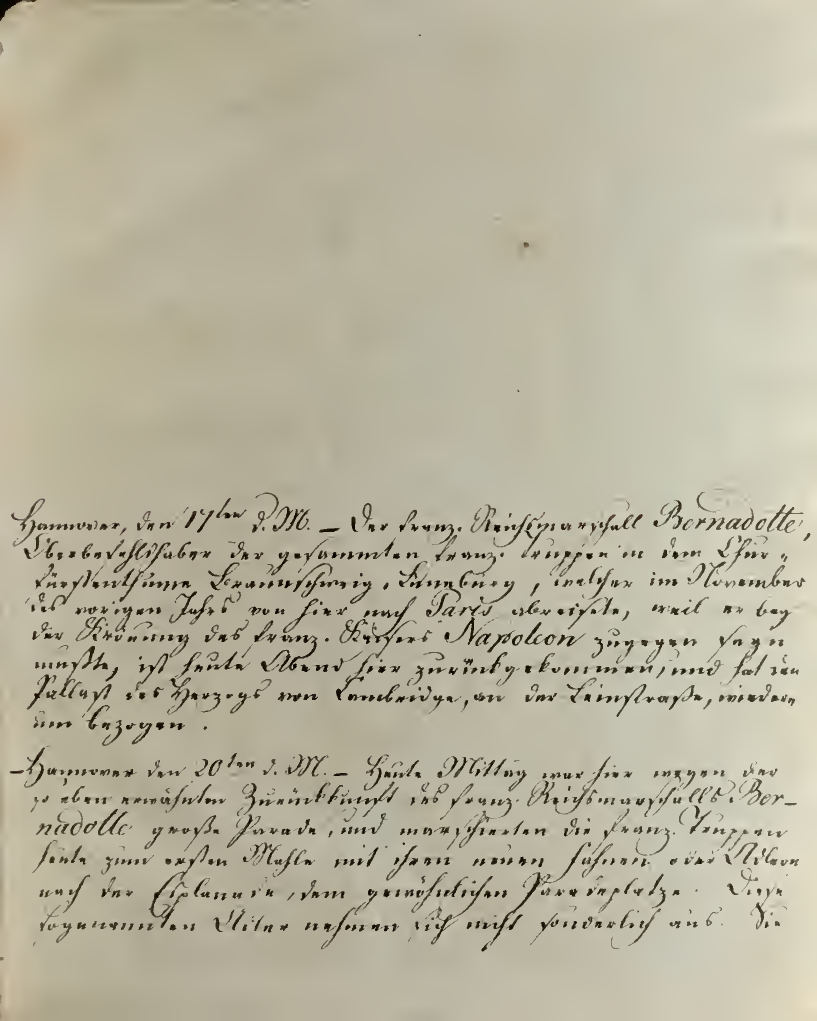 Hannover, den 17ten d. M. – Der franz. Reichsmarschall Bernadotte,
Oberbefehlshaber der gesammten franz. Truppen in dem Chur-
fürstenthume Braunschweig-Lüneburg, welcher im November
des vorigen Jahrs von hier nach Paris abreisete, weil er bey
der Krönung des franz. Kaisers Napoleon zugegen seyn
mußte, ist heute Abend hier zurückgekommen, und hat den
Pallast des Herzogs von Cambridge, an der Leinstraße, wieder-
um bezogen.
– Hannover den 20ten d. M. – Heute Mittag war hier wegen der
so eben erwähnten Zurückkunft des franz. Reichsmarschalls Ber-
nadotte große Parade, und marschierten die franz. Truppen
heute zum ersten Mahle mit ihren neuen Fahnen oder Adlern
nach der Esplanade, dem gewöhnlichen Paradeplatze. Diese
sogenannten nehmen sich nicht sonderlich aus. Sie